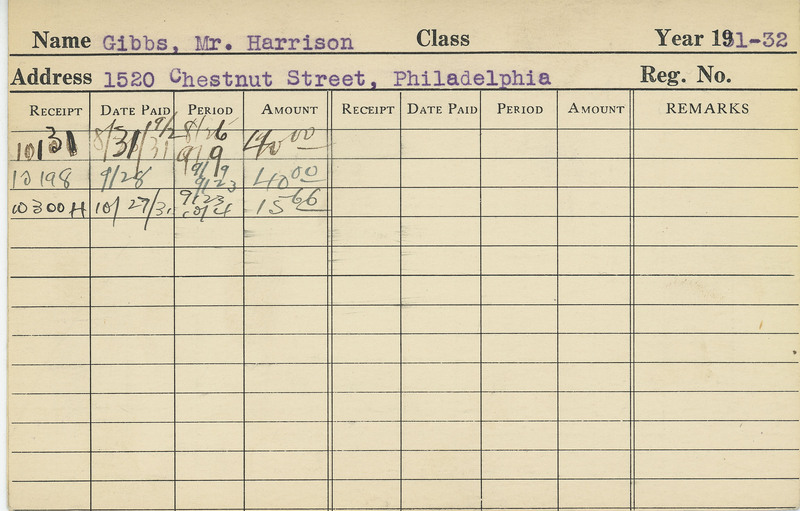 Name Gibbs, Mr. Harrison Class Year 1931-32
Address 1520 Chestnut Street, Philadelphia Reg. No.
RECEIPT DATE PAID PERIOD AMOUNT RECEIPT DATE PAID PERIOD AMOUNT REMARKS
10131 8/31/31 8/26 9/9 40 00
10198 9/28 9/9 9/23 40 00
10300H 10/27/31 9/23 10/4 15 66